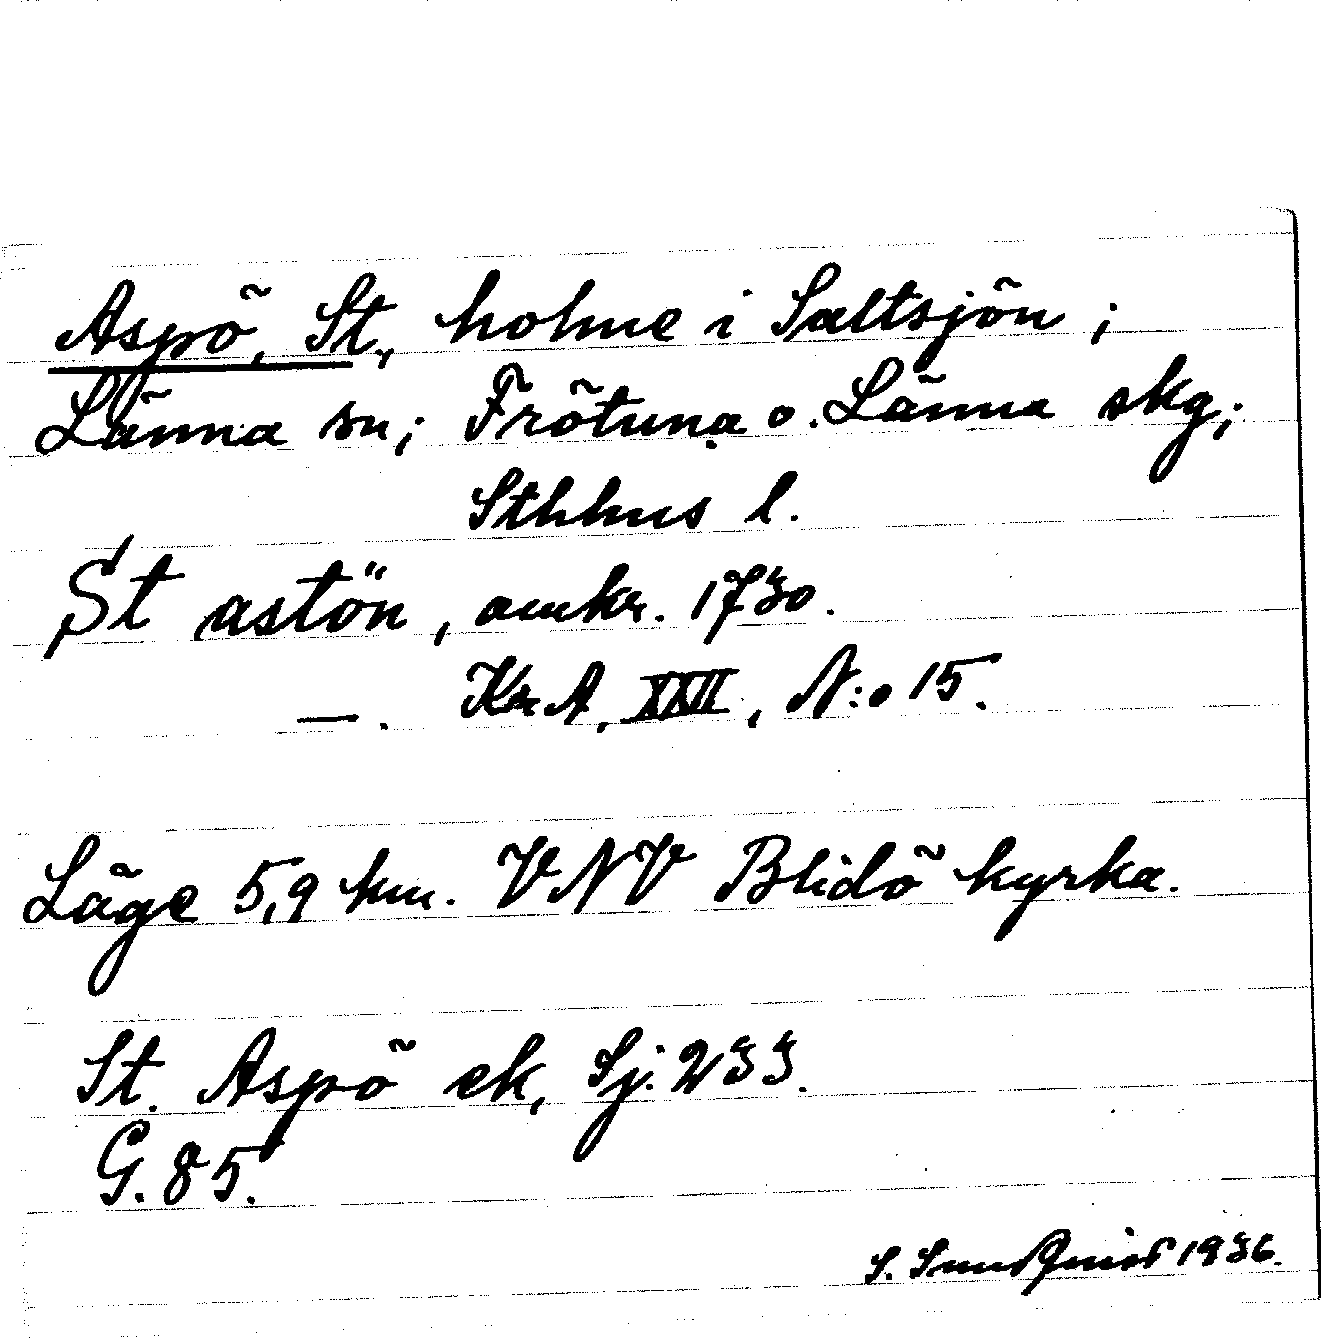 Aspö, St., holme i Saltsjön ;
Länna sn; Frötuna o. Länna skg;
Sthlms l.
St astön, omkr. 1730.
—. KrA, XXII, N:o 15.
Läge 5,9 km. VNV Blidö kyrka.
St. Aspö ek, Sj. 233.
G. 85.
S. Sundquist 1936.